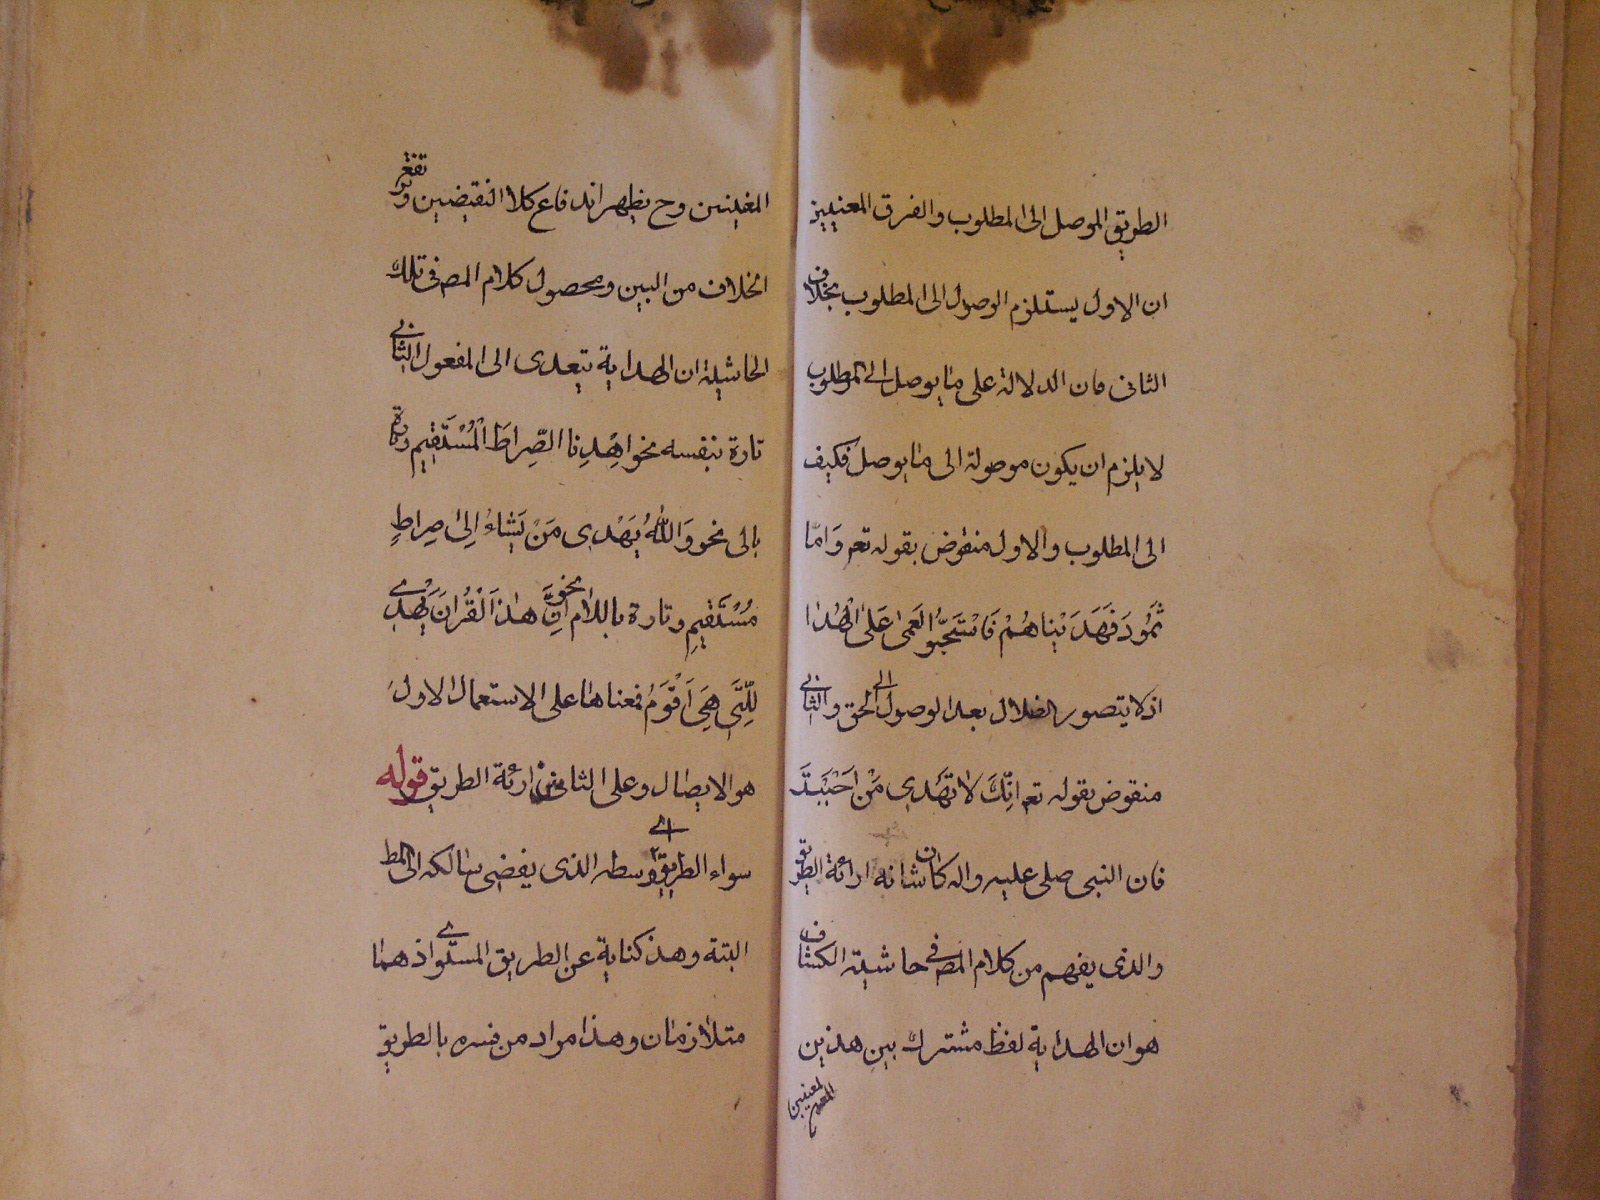 الطريق الموصل الى المطلوب والفرق المعنيين
ان الاول يستلزم الوصول الى المطلوب بخلاف
الثانى فان الدلالة على ما يوصل الى المطلوب
لا يلزم ان يكون موصولة الى ما يوصل فكيف
الى المطلوب والاول منقوض بقوله تعـ وَامّا
ثَمُودَ فَهَدَيْناهُمْ فَاسْتَحَبُّوا العَمىٰ عَلَى الْهُدا
اذ لا يتصور الضلال بعد الوصول الى الحق والثانى
منقوض بقوله تعـ اِنَّكَ لا تَهْدِى مَنْ اَحْبَبْتَ
فان النبى صلى عليه واله كان شانه ارائة الطريق
والذى يفهم من كلام المصـ فى حاشية الكشاف
هو ان الهداية لفظ مشترك بين هذين
المعنيين
المغينين وح يظهر اندفاع كلا النقيضين وتفع
الخلاف من البين ومحصول كلام المصـ فى تلك
الحاشية ان الهداية يتعدى الى المفعول الثانى
تارة بنفسه نحو اهْدِنا الصِّراطَ الْمُسْتَقِيم وتارة
بالى نحو وَاللّٰهُ يَهْدِى مَنْ يَشاءُ اِلىٰ صِراطٍ
مُسْتَقِيمٍ وتارة باللام نحو اِنَّ هٰذَا الْقُرْانَ يَهْدِى
لِلَّتِى هِىَ اَقْوَمُ فمعناها على الاستعمال الاول
هو الايصال وعلى الثانيين ارئة الطريق قوله
سواء الطريق اى وسطه الذى يفضى سالكه الى المط
البتة وهذ كناية عن الطريق المستوى اذ هما
متلازمان وهذا مراد من فسره بالطريق